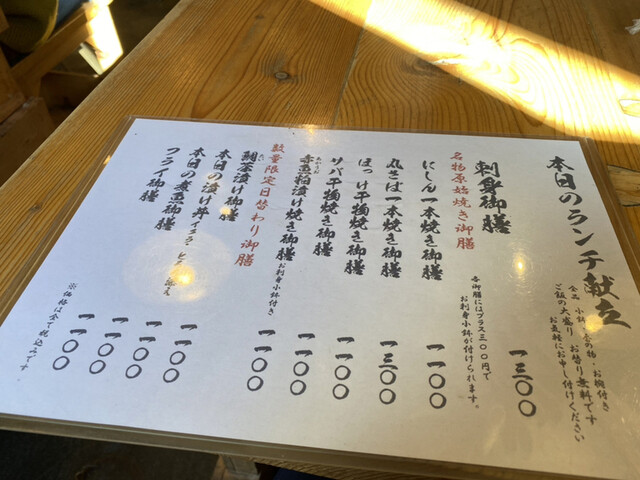 本日のランチ献立
全品 小鉢・香の物・お椀付き
ご飯の大盛り、お替り無料です
お気軽にお申し付けください
刺身御膳 一三〇〇
名物原始焼き御膳
各御膳にはプラス三〇〇円で
お刺身小鉢が付けられます。
にしん一本焼き御膳 一一〇〇
丸さば一本焼き御膳 一三〇〇
ほっけ干物焼き御膳 一一〇〇
サバ干物焼き御膳 一一〇〇
赤魚粕漬け焼き御膳 一一〇〇
数量限定日替わり御膳
お刺身小鉢付き
鯛茶漬け御膳 一一〇〇
本日の漬け丼 一一〇〇
本日の煮魚御膳 一一〇〇
フライ御膳 一一〇〇
※価格は全て税込みです